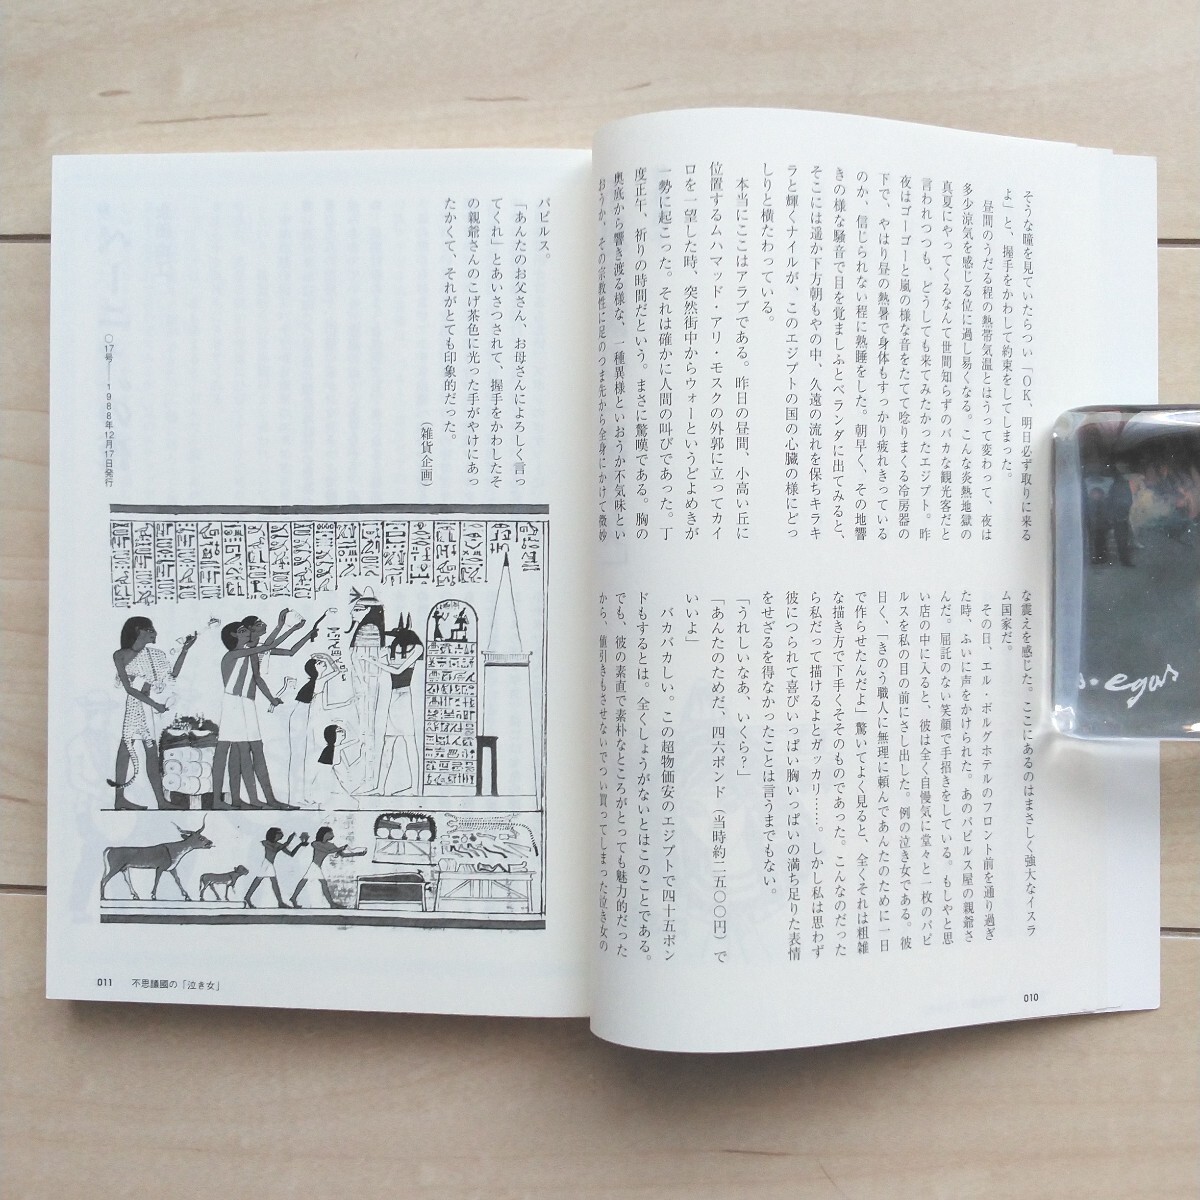 そうな瞳を見ていたらつい「OK、明日必ず取りに来る
よ」と、握手をかわして約束をしてしまった。
昼間のうだる程の熱帯気温とはうって変わって、夜は
多少涼気を感じる位に過し易くなる。こんな炎熱地獄の
真夏にやってくるなんて世間知らずのバカな観光客だと
言われつつも、どうしても来てみたかったエジプト。昨
夜はゴーゴーと嵐の様な音をたてて唸りまくる冷房器の
下で、やはり昼の熱暑で身体もすっかり疲れきっている
のか、信じられない程に熟睡をした。朝早く、その地響
きの様な騒音で目を覚ましふとベランダに出てみると、
そこには遥か下方朝もやの中、久遠の流れを保ちキラキ
ラと輝くナイルが、このエジプトの国の心臓の様にどっ
しりと横たわっている。
本当にここはアラブである。昨日の昼間、小高い丘に
位置するムハマッド・アリ・モスクの外郭に立ってカイ
ロを一望した時、突然街中からウォーというどよめきが
一勢に起こった。それは確かに人間の叫びであった。丁
度正午、祈りの時間だという。まさに驚嘆である。胸の
奥底から響き渡る様な、一種異様といおうか不気味とい
おうか、その宗教性に足のつま先から全身にかけて微妙
な震えを感じた。ここにあるのはまさしく強大なイスラ
ム国家だ。
その日、エル・ボルグホテルのフロント前を通り過ぎ
た時、ふいに声をかけられた。あのパピルス屋の親爺さ
んだ。屈託のない笑顔で手招きをしている。もしやと思
い店の中に入ると、彼は全く自慢気に堂々と一枚のパピ
ルスを私の目の前にさし出した。例の泣き女である。彼
曰く、「きのう職人に無理に頼んであんたのために一日
で作らせたんだよ」驚いてよく見ると、全くそれは粗雑
な描き方で下手くそそのものであった。こんなのだった
ら私だって描けるよとガッカリ……。しかし私は思わず
彼につられて喜びいっぱい胸いっぱいの満ち足りた表情
をせざるを得なかったことは言うまでもない。
「うれしいなあ、いくら？」
「あんたのためだ、四六ポンド（当時約二五〇〇円）で
いいよ」
バカバカしい。この超物価安のエジプトで四十五ポン
ドもするとは。全くしょうがないとはこのことである。
でも、彼の素直で素朴なところがとっても魅力的だった
から、値引きもさせないでつい買ってしまった泣き女の
010
パピルス。
「あんたのお父さん、お母さんによろしく言っ
てくれ」とあいさつされて、握手をかわしたそ
の親爺さんのこげ茶色に光った手がやけにあっ
たかくて、それがとても印象的だった。
（雑貨企画）
○17号──1988年12月17日発行
011 不思議國の「泣き女」
egas